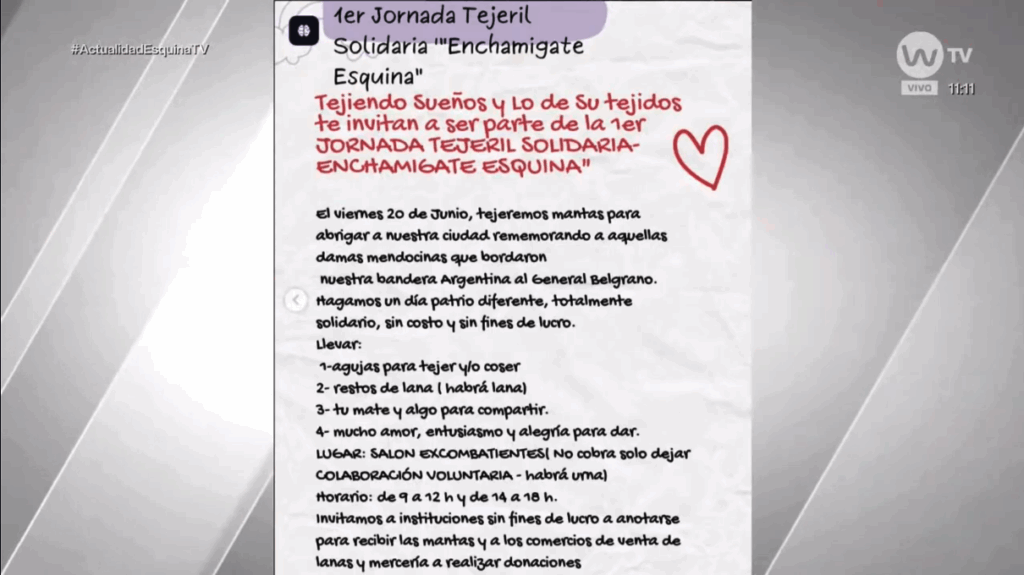 #ActualidadEsquinaTV
W TV
VIVO 11:11
1er Jornada Tejeril
Solidaria '"Enchamigate
Esquina"
Tejiendo Sueños y Lo de Su tejidos
te invitan a ser parte de la 1er
JORNADA TEJERIL SOLIDARIA-
ENCHAMIGATE ESQUINA"
El viernes 20 de Junio, tejeremos mantas para
abrigar a nuestra ciudad rememorando a aquellas
damas mendocinas que bordaron
nuestra bandera Argentina al General Belgrano.
Hagamos un día patrio diferente, totalmente
solidario, sin costo y sin fines de lucro.
Llevar:
1-agujas para tejer y/o coser
2- restos de lana ( habrá lana)
3- tu mate y algo para compartir.
4- mucho amor, entusiasmo y alegría para dar.
LUGAR: SALON EXCOMBATIENTES( No cobra solo dejar
COLABORACIÓN VOLUNTARIA - habrá urna)
Horario: de 9 a 12 h y de 14 a 18 h.
Invitamos a instituciones sin fines de lucro a anotarse
para recibir las mantas y a los comercios de venta de
lanas y mercería a realizar donaciones